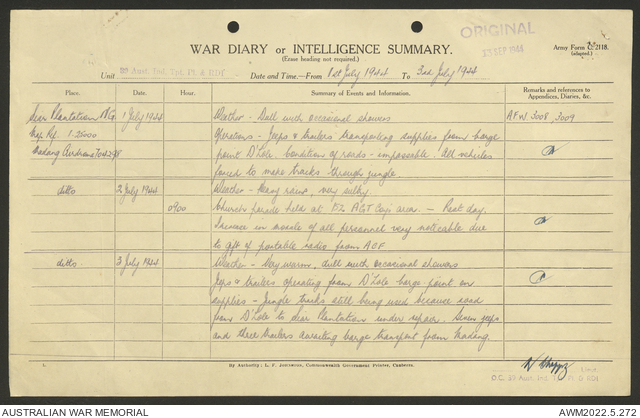 ORIGINAL
13 SEP 1944
WAR DIARY or INTELLIGENCE SUMMARY.
(Erase heading not required.)
Army Form C. 2118.
(adapted.)
Unit 39 Aust. Ind. Tpt. Pl. G RDF
Date and Time—From 1st July 1944 To 3rd July 1944
Place. Date. Hour. Summary of Events and Information. Remarks and references to Appendices, Diaries, &c.
Siar Plantation 1 July 1944 Weather - Dull with occasional showers AFW 3008, 3009
Map Ref. 1-25000 Operations - Jeeps & trailers transporting supplies from barge
Madang point D'Lole. Conditions of roads - impassable. All vehicles
forced to make tracks through jungle.
ditto 2 July 1944 Weather - Heavy rains, very sultry.
0900 Church parade held at AGT Coy area. — Rest day.
Increase in morale of all personnel very noticeable due
to gift of portable radio from ACF
ditto 3 July 1944 Weather - Very warm, dull with occasional showers
Jeeps & trailers operating from D'Lole barge point on
supplies - Jungle tracks still being used because road
from D'Lole to Siar Plantation under repair. Seven jeeps
and three trailers awaiting barge transport from Madang.
1.
By Authority: L. F. Johnston, Commonwealth Government Printer, Canberra.
Lieut.
O.C. 39 Aust. Ind. Tpt. Pl. G RDF
AUSTRALIAN WAR MEMORIAL
AWM2022.5.272